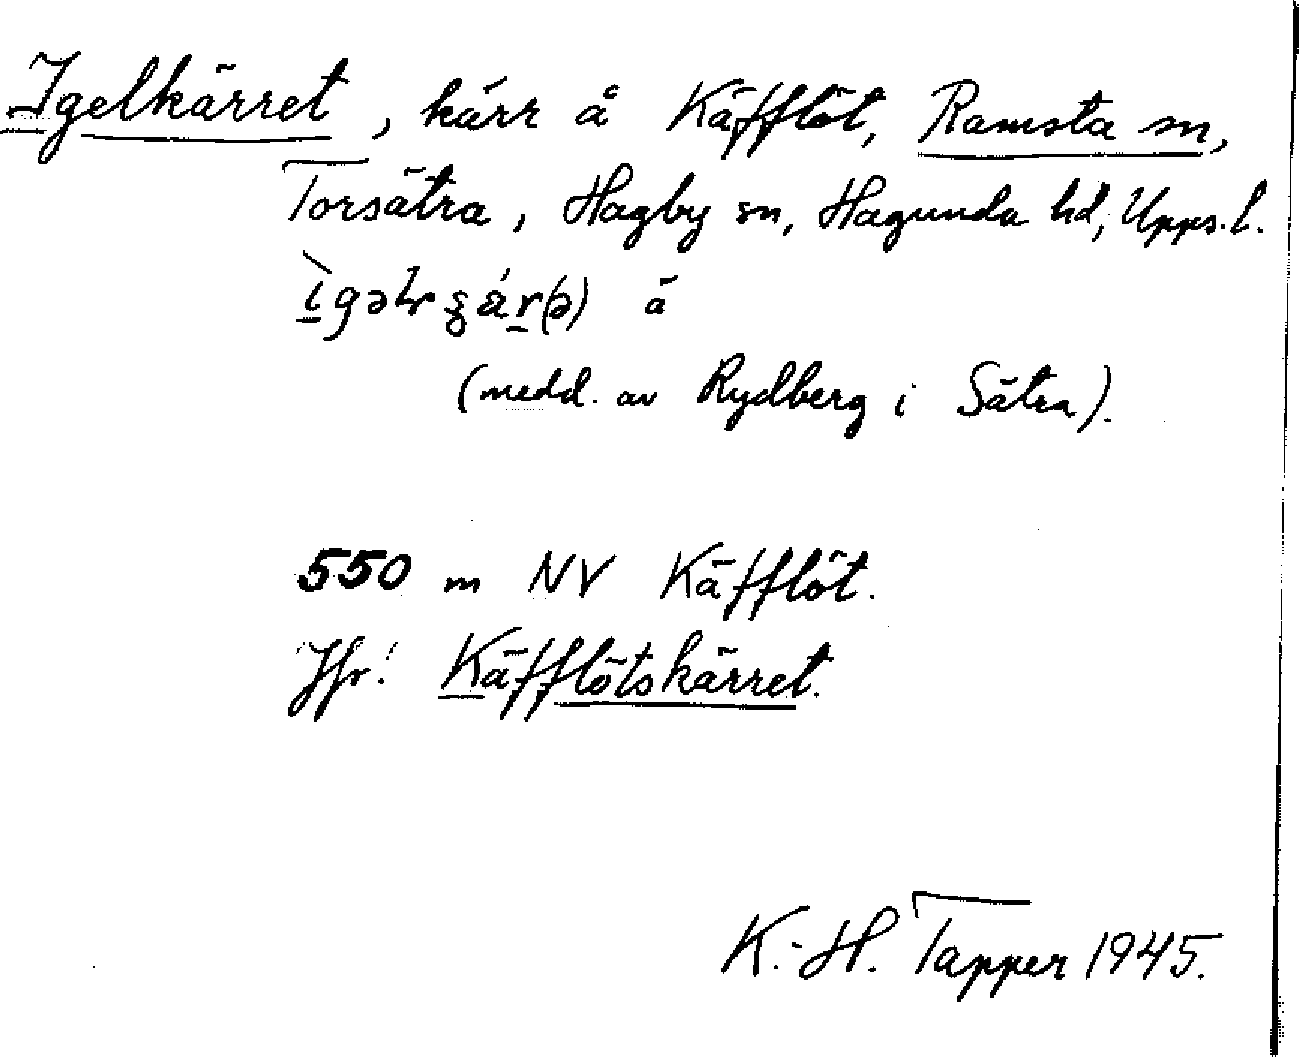 Igelkärret, kärr å Käfflöt, Ramsta sn,
Torsätra, Hagby sn, Hagunda hd, Upps. l.
(medd. av Rydberg i Sätra).
550 m NV Käfflöt.
Jfr! Käfflötskärret.
K.-H. Tapper 1945.